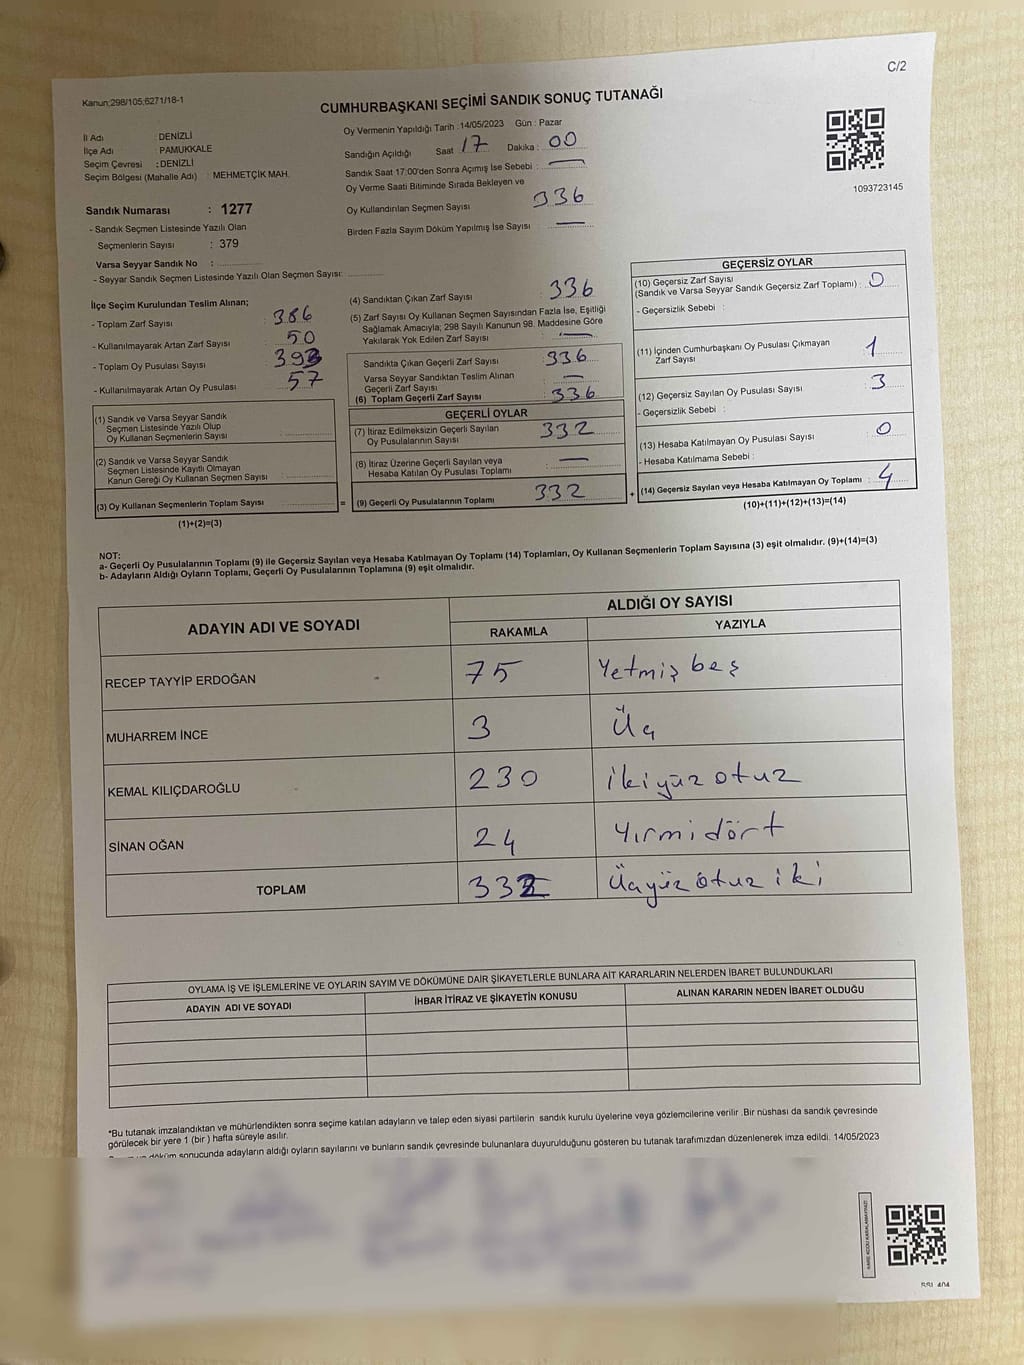 C/2
Kanun;298/105;6271/18-1
CUMHURBAŞKANI SEÇİMİ SANDIK SONUÇ TUTANAĞI
İl Adı : DENİZLİ
İlçe Adı : PAMUKKALE
Seçim Çevresi : DENİZLİ
Seçim Bölgesi (Mahalle Adı) : MEHMETÇİK MAH.
Sandık Numarası : 1277
- Sandık Seçmen Listesinde Yazılı Olan
Seçmenlerin Sayısı : 379
Varsa Seyyar Sandık No :
- Seyyar Sandık Seçmen Listesinde Yazılı Olan Seçmen Sayısı:
Oy Vermenin Yapıldığı Tarih :14/05/2023 Gün : Pazar
Sandığın Açıldığı Saat 17 Dakika : 00
Sandık Saat 17:00'den Sonra Açımış İse Sebebi : —
Oy Verme Saati Bitiminde Sırada Bekleyen ve
Oy Kullandırılan Seçmen Sayısı 336
Birden Fazla Sayım Döküm Yapılmış İse Sayısı : —
1093723145
İlçe Seçim Kurulundan Teslim Alınan;
- Toplam Zarf Sayısı : 386
- Kullanılmayarak Artan Zarf Sayısı : 50
- Toplam Oy Pusulası Sayısı : 393
- Kullanılmayarak Artan Oy Pusulası : 57
(1) Sandık ve Varsa Seyyar Sandık
Seçmen Listesinde Yazılı Olup
Oy Kullanan Seçmenlerin Sayısı :
(2) Sandık ve Varsa Seyyar Sandık
Seçmen Listesinde Kayıtlı Olmayan
Kanun Gereği Oy Kullanan Seçmen Sayısı :
(3) Oy Kullanan Seçmenlerin Toplam Sayısı :
(1)+(2)=(3)
(4) Sandıktan Çıkan Zarf Sayısı : 336
(5) Zarf Sayısı Oy Kullanan Seçmen Sayısından Fazla İse, Eşitliği
Sağlamak Amacıyla; 298 Sayılı Kanunun 98. Maddesine Göre
Yakılarak Yok Edilen Zarf Sayısı : —
Sandıkta Çıkan Geçerli Zarf Sayısı : 336
Varsa Seyyar Sandıktan Teslim Alınan
Geçerli Zarf Sayısı : —
(6) Toplam Geçerli Zarf Sayısı : 336
GEÇERLİ OYLAR
(7) İtiraz Edilmeksizin Geçerli Sayılan
Oy Pusulalarının Sayısı : 332
(8) İtiraz Üzerine Geçerli Sayılan veya
Hesaba Katılan Oy Pusulası Toplamı : —
= (9) Geçerli Oy Pusulalarının Toplamı : 332
GEÇERSİZ OYLAR
(10) Geçersiz Zarf Sayısı
(Sandık ve Varsa Seyyar Sandık Geçersiz Zarf Toplamı) : 0
- Geçersizlik Sebebi :
(11) İçinden Cumhurbaşkanı Oy Pusulası Çıkmayan
Zarf Sayısı : 1
(12) Geçersiz Sayılan Oy Pusulası Sayısı : 3
- Geçersizlik Sebebi :
(13) Hesaba Katılmayan Oy Pusulası Sayısı : 0
- Hesaba Katılmama Sebebi :
+ (14) Geçersiz Sayılan veya Hesaba Katılmayan Oy Toplamı : 4
(10)+(11)+(12)+(13)=(14)
NOT:
a- Geçerli Oy Pusulalarının Toplamı (9) ile Geçersiz Sayılan veya Hesaba Katılmayan Oy Toplamı (14) Toplamları, Oy Kullanan Seçmenlerin Toplam Sayısına (3) eşit olmalıdır. (9)+(14)=(3)
b- Adayların Aldığı Oyların Toplamı, Geçerli Oy Pusulalarının Toplamına (9) eşit olmalıdır.
ADAYIN ADI VE SOYADI ALDIĞI OY SAYISI
RAKAMLA YAZIYLA
RECEP TAYYİP ERDOĞAN 75 Yetmiş beş
MUHARREM İNCE 3 Üç
KEMAL KILIÇDAROĞLU 230 İkiyüz otuz
SİNAN OĞAN 24 Yırmi dört
TOPLAM 332 Üçyüz otuz iki
OYLAMA İŞ VE İŞLEMLERİNE VE OYLARIN SAYIM VE DÖKÜMÜNE DAİR ŞİKAYETLERLE BUNLARA AİT KARARLARIN NELERDEN İBARET BULUNDUKLARI
ADAYIN ADI VE SOYADI İHBAR İTİRAZ VE ŞİKAYETİN KONUSU ALINAN KARARIN NEDEN İBARET OLDUĞU
*Bu tutanak imzalandıktan ve mühürlendikten sonra seçime katılan adayların ve talep eden siyasi partilerin sandık kurulu üyelerine veya gözlemcilerine verilir .Bir nüshası da sandık çevresinde
görülecek bir yere 1 (bir ) hafta süreyle asılır.
döküm sonucunda adayların aldığı oyların sayılarını ve bunların sandık çevresinde bulunanlara duyurulduğunu gösteren bu tutanak tarafımızdan düzenlenerek imza edildi. 14/05/2023